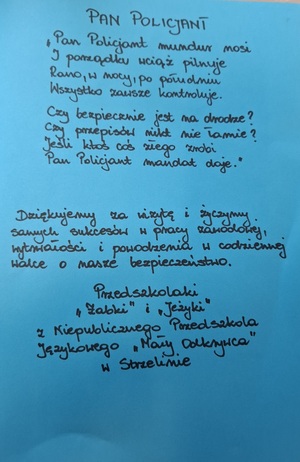 PAN POLICJANT
"Pan Policjant mundur nosi
I porządku wciąż pilnuje
Rano, w nocy, po południu
Wszystko zawsze kontroluje.
Czy bezpiecznie jest na drodze?
Czy przepisów nikt nie łamie?
Jeśli ktoś coś złego zrobi
Pan Policjant mandat daje."
Dziękujemy za wizytę i życzymy
samych sukcesów w pracy zawodowej,
wytrwałości i powodzenia w codziennej
walce o nasze bezpieczeństwo.
Przedszkolaki
"Żabki" i "Jeżyki"
z Niepublicznego Przedszkola
Językowego "Mały Odkrywca"
w Strzelinie